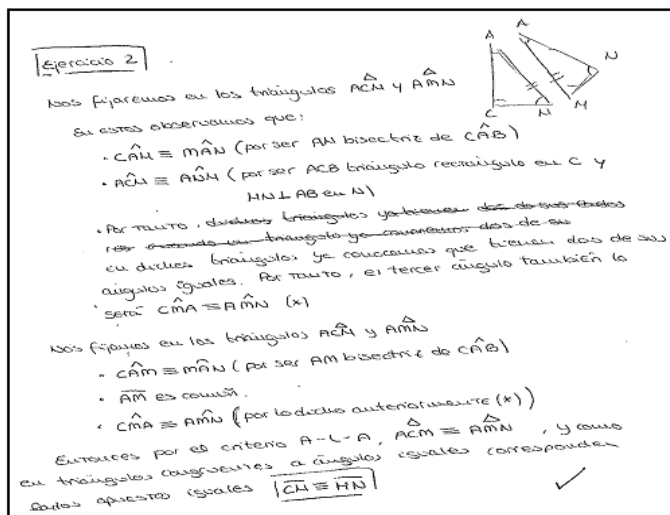 Ejercicio 2
Nos fijaremos en los triángulos ACM y AMN
En estos observamos que:
· CÂM ≡ MÂN (por ser AM bisectriz de CÂB)
· AĈM ≡ AN̂M (por ser ACB triángulo rectángulo en C y
MN⊥AB en N)
· Por tanto, dichos triángulos ya tienen dos de sus lados
tres cuando un triángulo ya conocemos dos de su
en dichos triángulos ya conocemos que tienen dos de sus
ángulos iguales. Por tanto, el tercer ángulo también lo
será CM̂A ≡ AM̂N (*)
Nos fijamos en los triángulos ACM y AMN
· CÂM ≡ MÂN (por ser AM bisectriz de CÂB)
· AM es común.
· CM̂A ≡ AM̂N (por lo dicho anteriormente (*))
Entonces por el criterio A-L-A, ACM ≡ AMN, y como
en triángulos congruentes a ángulos iguales corresponden
lados opuestos iguales CM ≡ MN
A
A
N
C
M
M